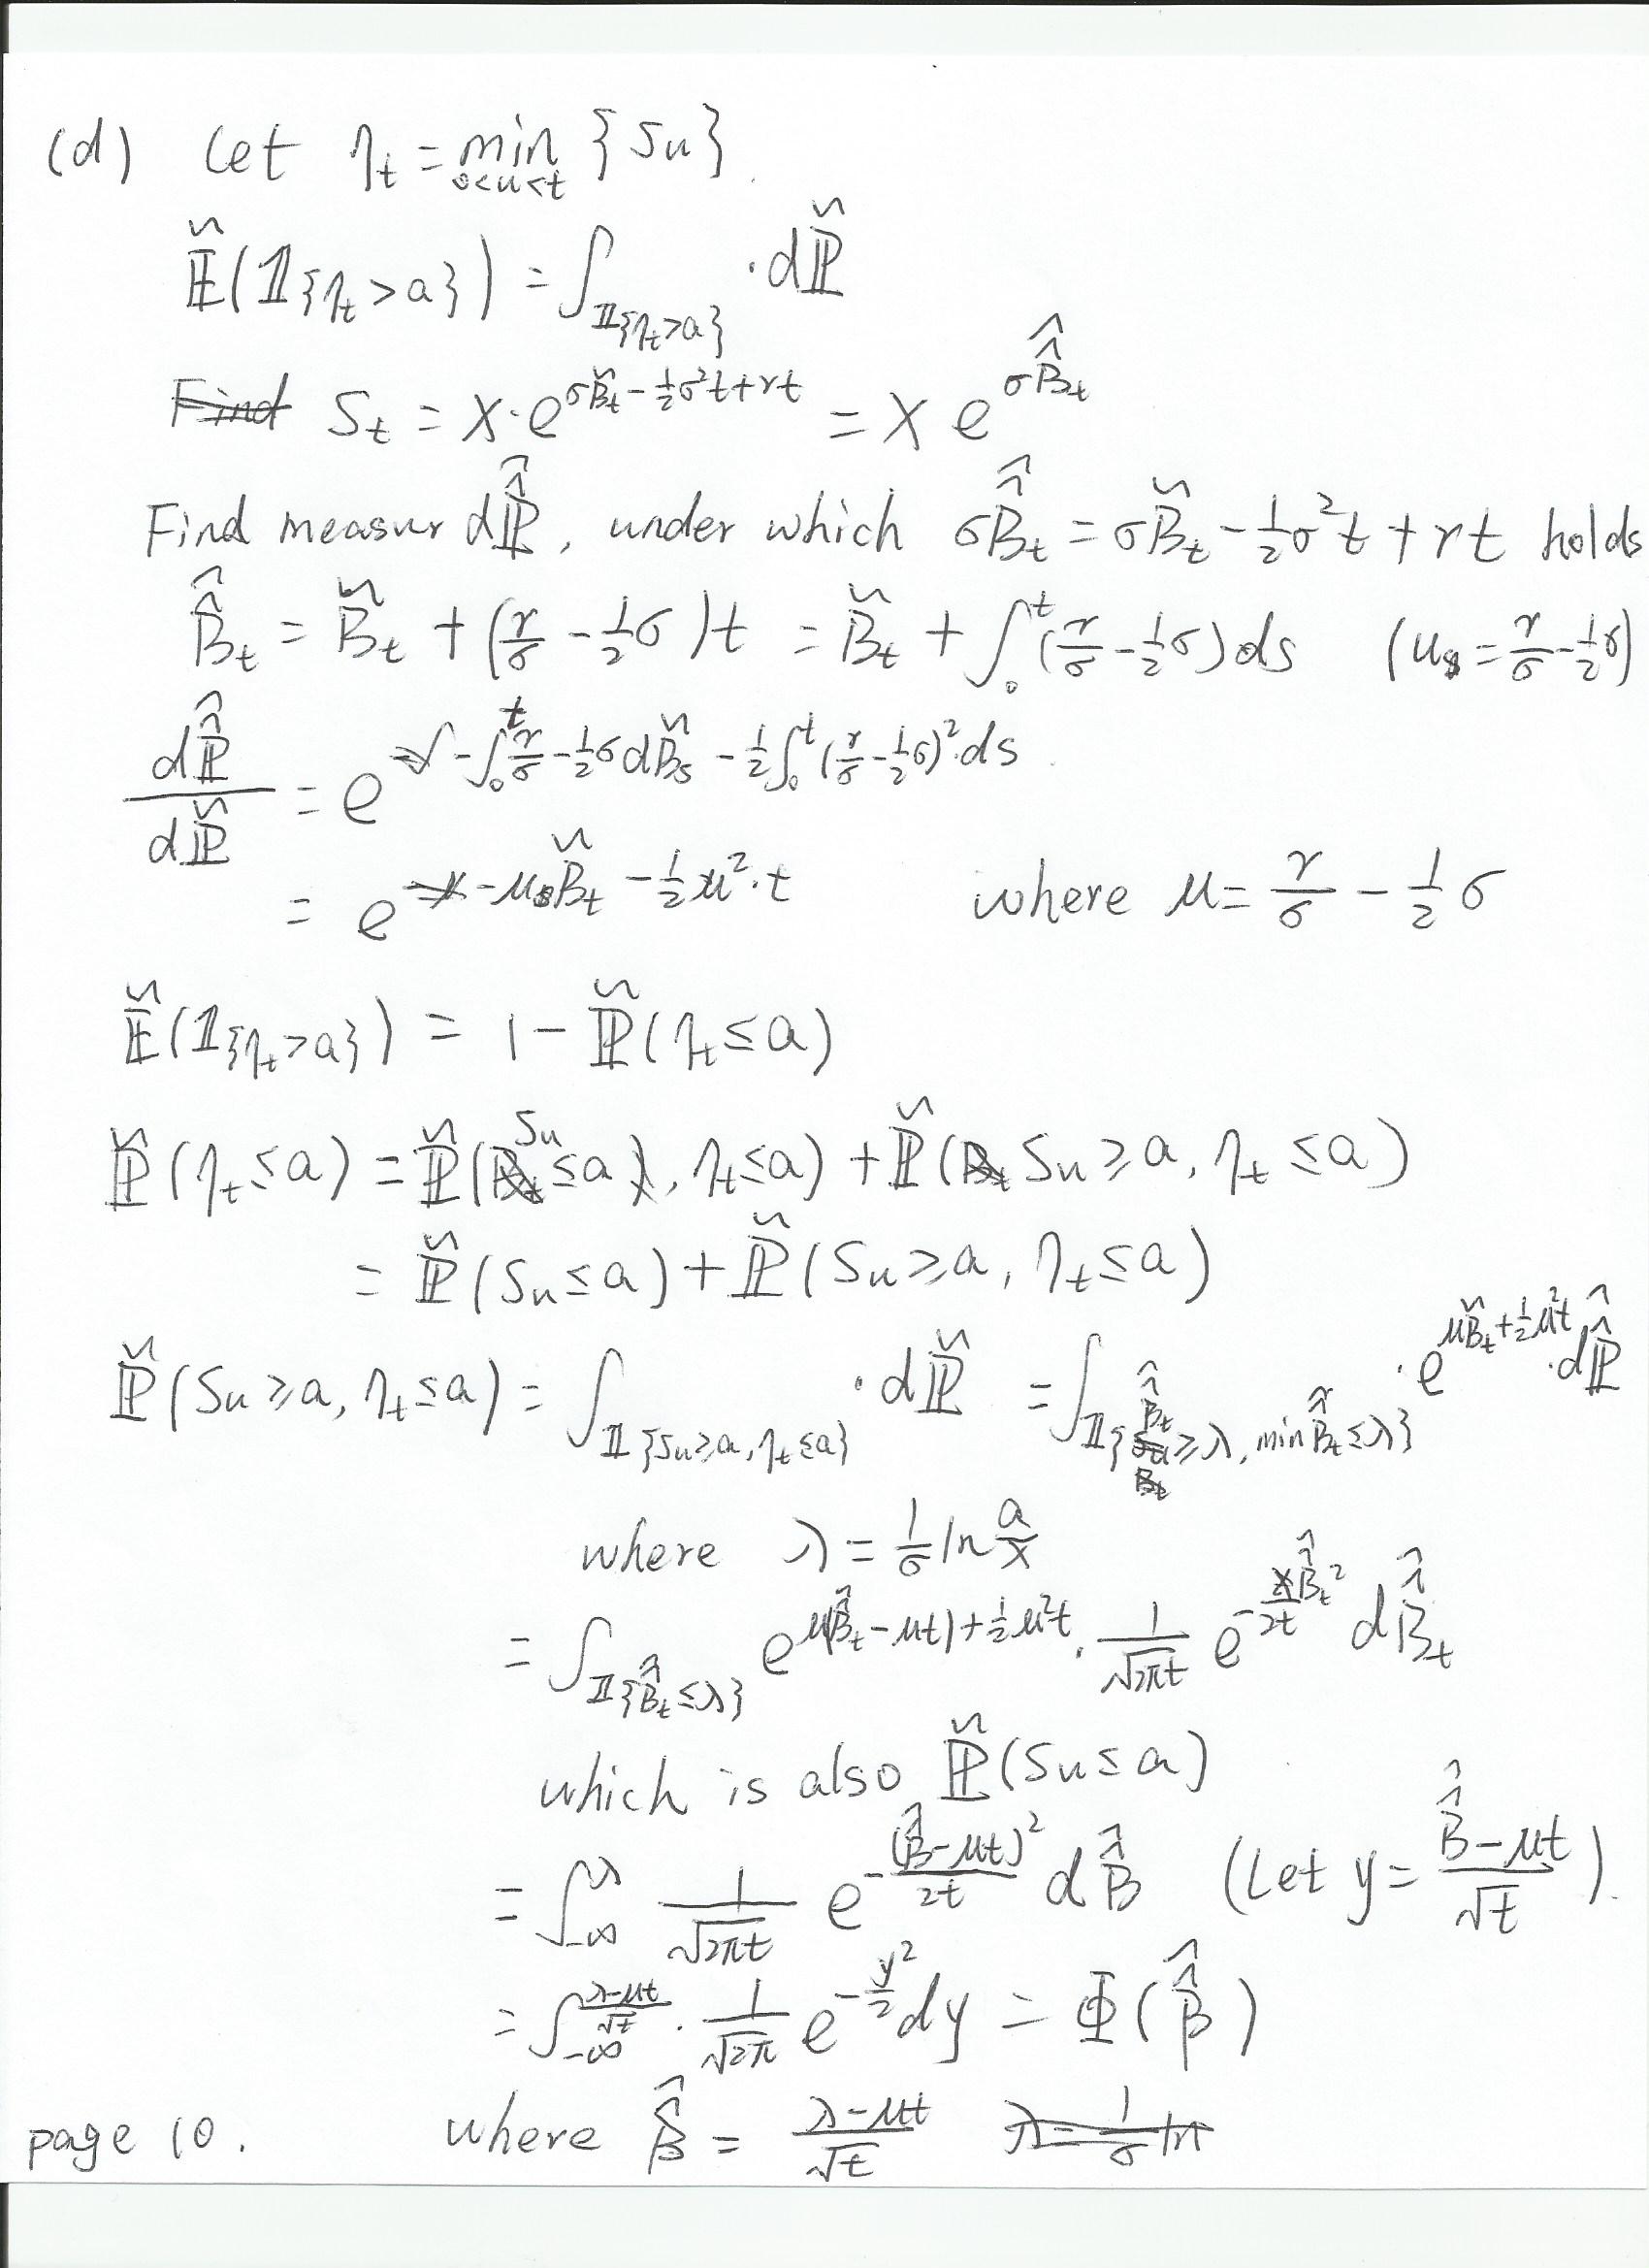 (d) Let η_t = min_{0<u<t} {S_u}
Ẽ(𝟙{η_t>a}) = ∫_{𝟙{η_t>a}} · dP̃
S_t = x·e^{σB̃_t - ½σ²t + rt} = x e^{σB̂_t}
Find measur dP̂, under which σB̂_t = σB̃_t - ½σ²t + rt holds
B̂_t = B̃_t + (r/σ - ½σ)t = B̃_t + ∫_0^t (r/σ - ½σ) ds (u_s = r/σ - ½σ)
dP̂/dP̃ = e^{-∫_0^t r/σ - ½σ dB̃_s - ½∫_0^t (r/σ - ½σ)²·ds}
= e^{-μB̃_t - ½μ²·t} where μ = r/σ - ½σ
Ẽ(𝟙{η_t>a}) = 1 - P̃(η_t ≤ a)
P̃(η_t ≤ a) = P̃(S_u ≤ a, η_t ≤ a) + P̃(S_u ≥ a, η_t ≤ a)
= P̃(S_u ≤ a) + P̃(S_u ≥ a, η_t ≤ a)
P̃(S_u ≥ a, η_t ≤ a) = ∫_{𝟙{S_u ≥ a, η_t ≤ a}} · dP̃ = ∫_{𝟙{B̂_t ≥ λ, min B̂_t ≤ λ}} · e^{μB̃_t + ½μ²t} · dP̂
where λ = 1/σ ln a/x
= ∫_{𝟙{B̂_t ≤ λ}} e^{μ(B̂_t - μt) + ½μ²t} · 1/√(2πt) e^{-B̂_t²/2t} dB̂_t
which is also P̃(S_u ≤ a)
= ∫_{-∞}^λ 1/√(2πt) e^{-(B̂ - μt)²/2t} dB̂ (Let y = (B̂ - μt)/√t).
= ∫_{-∞}^{(λ - μt)/√t} · 1/√(2π) e^{-y²/2} dy = Φ(β̂)
where β̂ = (λ - μt)/√t
page 10.